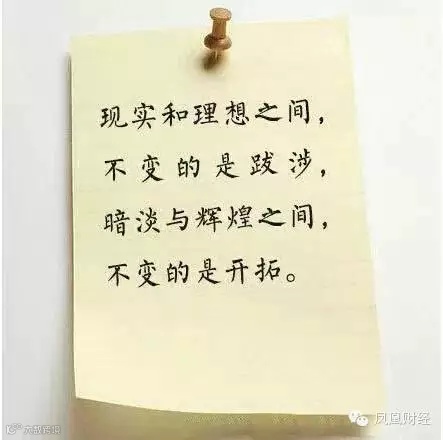 现实和理想之间，
不变的是跋涉，
暗淡与辉煌之间，
不变的是开拓。
凤凰财经